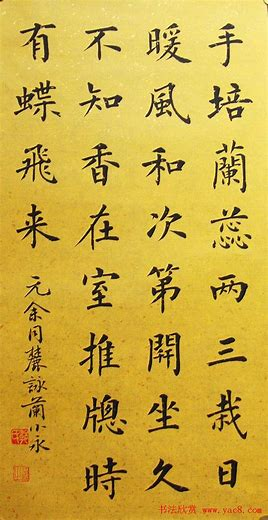 手培蘭蕊两三栽日
暖風和次第開坐久
不知香在室推牕時
有蝶飛来
元余同麓詠蘭小永
书法欣赏
http://www.yac8.com